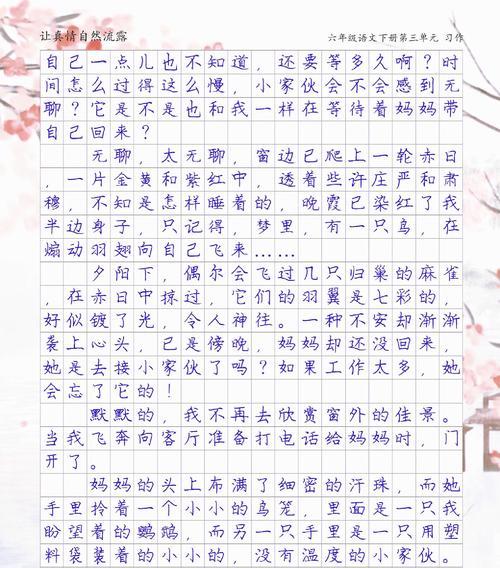 让真情自然流露
六年级语文下册第三单元 习作
自己一点儿也不知道，还要等多久啊？时
间怎么过得这么慢，小家伙会不会感到无
聊？它是不是也和我一样在等待着妈妈带
自己回来？
无聊，太无聊，窗边已爬上一轮赤日
，一片金黄和紫红中，透着些许庄严和肃
穆，不知是怎样睡着的，晚霞已染红了我
半边身子，只记得，梦里，有一只鸟，在
煽动羽翅向自己飞来……
夕阳下，偶尔会飞过几只归巢的麻雀
，在赤日中掠过，它们的羽翼是七彩的，
好似镀了光，令人神往。一种不安却渐渐
袭上心头，已是傍晚，妈妈却还没回来，
她是去接小家伙了吗？如果工作太多，她
会忘了它的！
默默的，我不再去欣赏窗外的佳景。
当我飞奔向客厅准备打电话给妈妈时，门
开了。
妈妈的头上布满了细密的汗珠，而她
手里拎着一个小小的鸟笼，里面是一只我
盼望着的鹦鹉，而另一只手里是一只用塑
料袋装着的小小的，没有温度的小家伙。